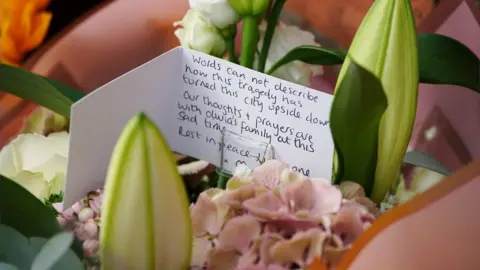 Words can not describe
how this tragedy has
turned this city upside down
Our thoughts + prayers are
with olivia's family at this
Sad time
Rest in peace